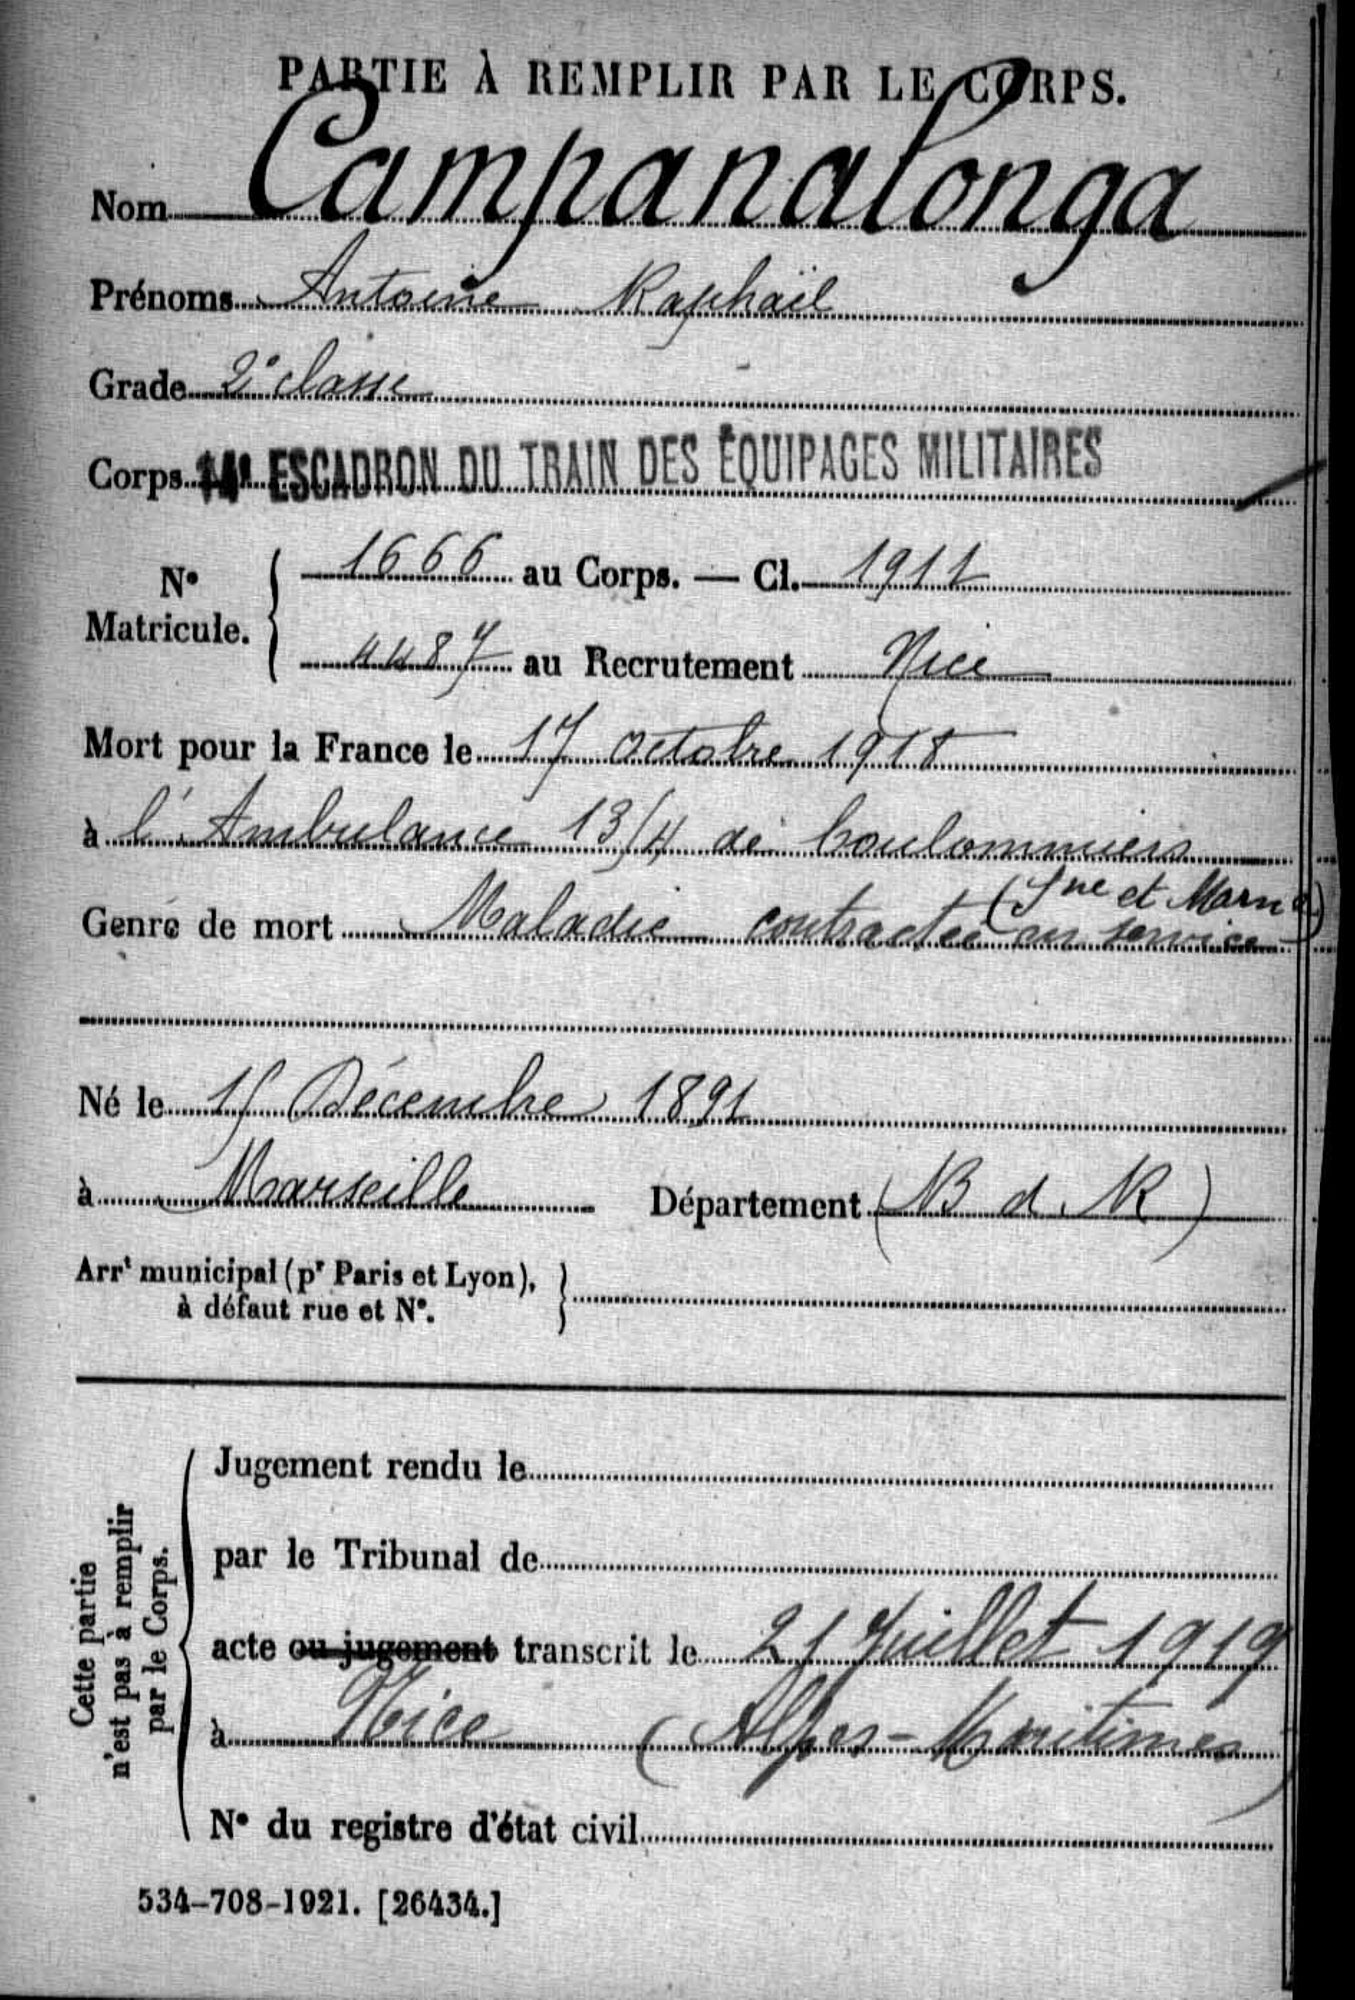 PARTIE À REMPLIR PAR LE CORPS.
Nom Campanalonga
Prénoms Antoine Raphaël
Grade 2e classe
Corps 14e ESCADRON DU TRAIN DES ÉQUIPAGES MILITAIRES
N° Matricule. { 1666 au Corps. — Cl. 1911
4487 au Recrutement Nice
Mort pour la France le 17 octobre 1918
à l'Ambulance 13/4 de Coulommiers
(Sne et Marne)
Genre de mort Maladie contractée en service
Né le 15 Décembre 1891
à Marseille Département (B d R)
Arrt municipal (pr Paris et Lyon), }
à défaut rue et N°.
Cette partie n'est pas à remplir par le Corps.
Jugement rendu le
par le Tribunal de
acte ou jugement transcrit le 21 Juillet 1919
à Nice (Alpes-Maritimes)
N° du registre d'état civil
534-708-1921. [26434.]